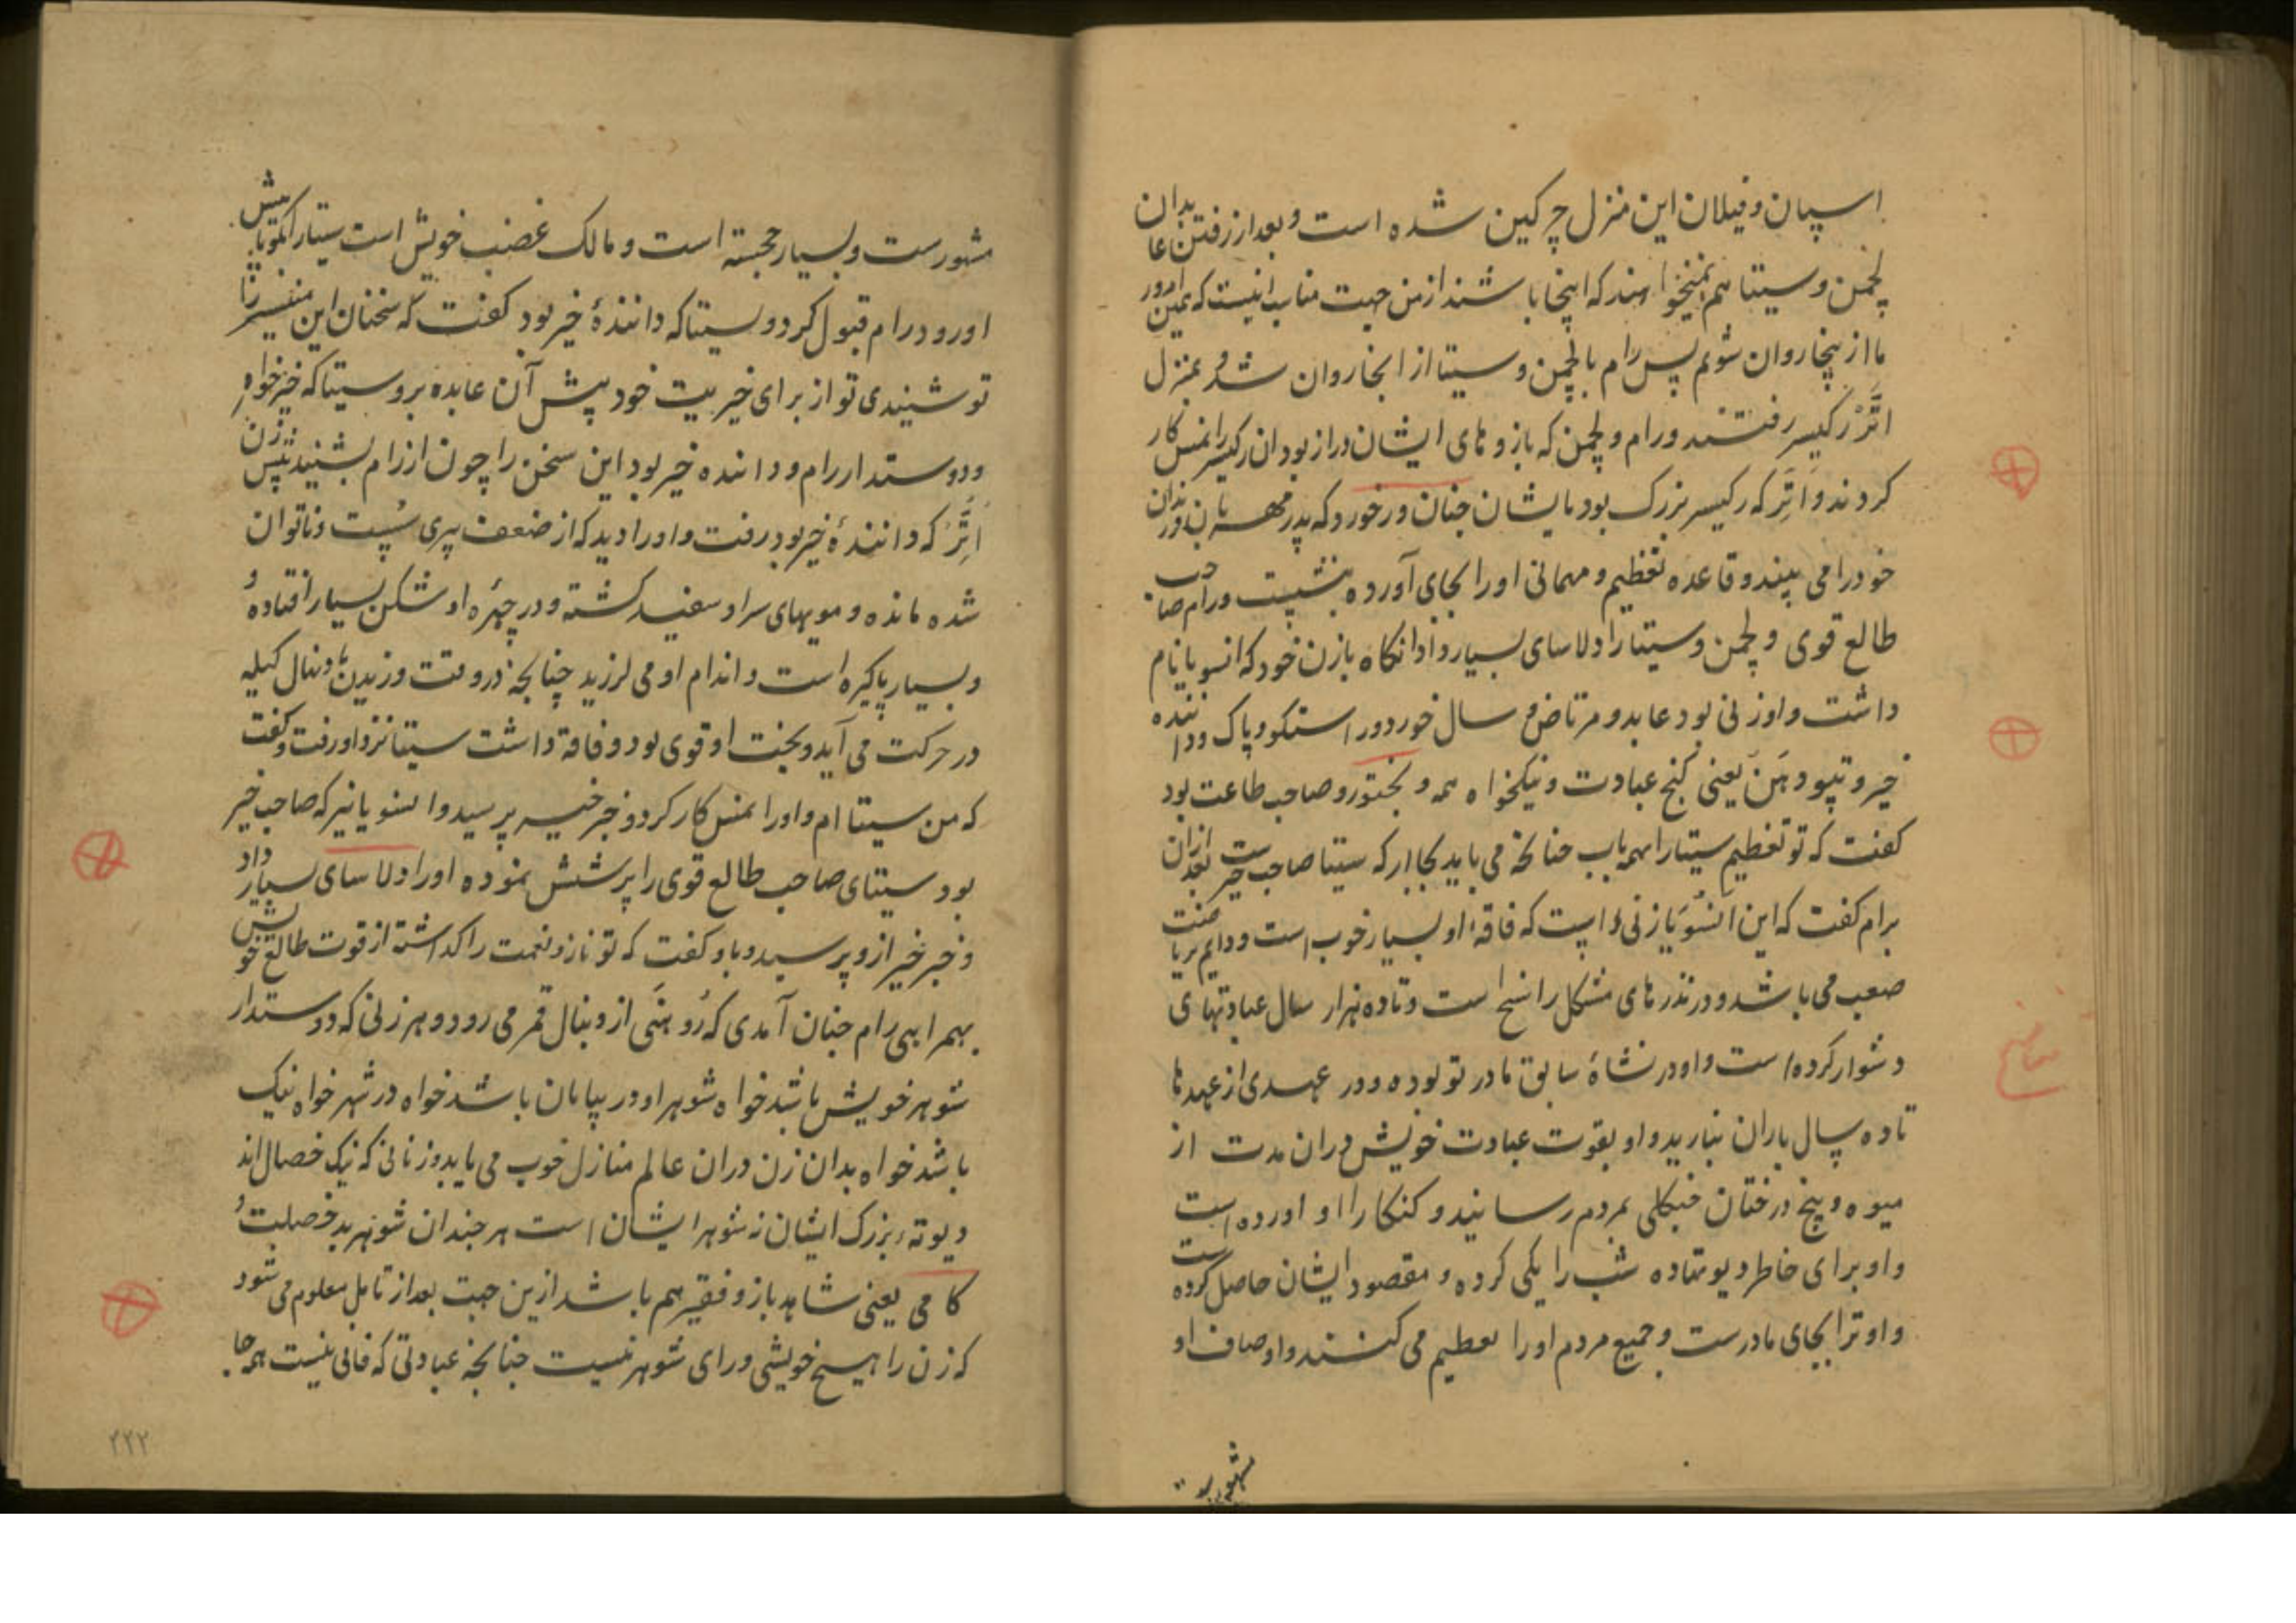 اسپان و فیلان این منزل چرکین شده است و بعد از رفتن عابدان
لچمن و سیتا هم نمیخواهند که اینجا باشند ازمن جهت مناسب انیست که همین امروز
ما از ینجا روان شویم پس رام با لچمن و سیتا از انجا روان شد و بمنزل
اَتَّرْ رکیسر رفتند و رام و لچمن که بازوهای ایشان دراز بود ان رکیسر را نمس کار
کردند و اَتَّرِ که رکیسر بزرک بود بایشان چنان ورخورد که پدر مهربان فرزندان
خود را می بیند و قاعده تعظیم و مهمانی او را بجای آورده بنشست و رام صاحب
طالع قوی و لچمن و سیتا را دلاسای بسیار داد انکاه بازن خود که انسویا نام
داشت و او زنی بود عابد و مرتاض و سال خورد و راستکو و پاک و داننده
خیر و تپودهن یعنی کنج عبادت و نیکخواه همه و بختور و صاحب طاعت بود
کفت که تو تعظیم سیتا را بهمه باب چنانچه می باید بجا ار که سیتا صاحب خیرست بعد ازان
برام کفت که این انسویا زنی است که فاقه او بسیار خوب است و دایم بریاضت
صعب می باشد و در نذرهای مشکل راسخ است و تا ده هزار سال عبادتهای
دشوار کرده است و او در نشاهٔ سابق مادر تو بوده و در عهدی از عهدها
تا ده سال باران نبارید و او بقوت عبادت خویش دران مدت از
میوه و بیخ درختان جنکلی بمردم رسانید و کنکا را او اورده است
و او برای خاطر دیوتها ده شب را یکی کرده و مقصود ایشان حاصل کرده است
و او ترا بجای مادرست و جمیع مردم او را تعظیم می کنند و اوصاف او
مشهورست
مشهورست و بسیار خجسته است و مالک غضب خویش است سیتا را بکو تا پیش
او رود رام قبول کرد و بسیتا که دانندهٔ خیر بود کفت که سخنان این منیسر را
تو شنیدی تو از برای خیریت خود پیش آن عابده برو سیتا که خیرخواهِ
و دوستدار رام و داننده خیر بود این سخن را چون از رام بشنید پیش زن
اَتَّرِ که دانندهٔ خیر بود رفت و او را دید که از ضعف پیری سُست و ناتوان
شده مانده و مویهای سر او سفید کشته و در چهره او شکن بسیار افتاده و
و بسیار پاکیزه است و اندام او می لرزید چنانچه در وقت وزیدن باد نهال کیله
در حرکت می آید و بخت او قوی بود و فاقه داشت سیتا نزد او رفت و کفت
که من سیتا ام و او را نمس کار کرد و خبر خیر پرسید و انسویا نیز که صاحب خیر
بود سیتای صاحب طالع قوی را پرسش نموده او را دلاسای بسیار داد
و خبر خیر ازو پرسید و باو کفت که تو ناز و نعمت را کداشته از قوت طالع خویش
بهمراهی رام چنان آمدی که رُوهنَی از دنبال قمر می رود و هر زنی که دوستدار
شوهر خویش باشد خواه شوهر او در بیابان باشد خواه در شهر خواه نیک
باشد خواه بد ان زن دران عالم منازل خوب می یابد و زنانی که نیک خصال اند
دیوتهٔ بزرک ایشان شوهر ایشان است هر چند ان شوهر بد خصلت و
کامی یعنی شاهد باز و فقیر هم باشد ازین جهت بعد از تامل معلوم می شود
که زن را هیچ خویشی ورای شوهر نیست چنانچه عبادتی که فانی نیست همه جا
۲۲۲